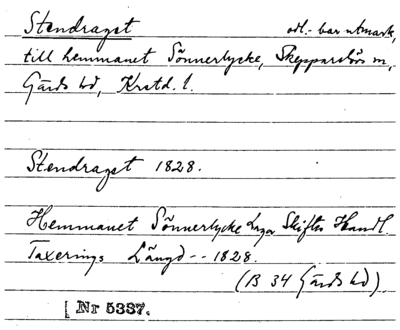 Stendraget odl.-bar utmark,
till hemmanet Sönnerlycke, Skepparslövs sn,
Gärds hd, Krstd. l.
Stendraget 1828.
Hemmanet Sönnerlycke Laga Skiftes Handl.
Taxerings Längd -- 1828.
(B 34 Gärds hd).
[ Nr 5337.